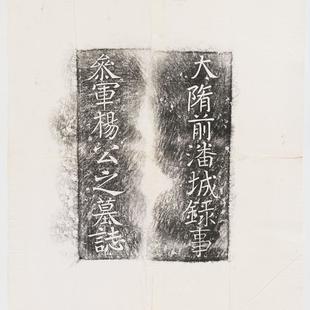 大隋前潘城録事
叅軍楊公之墓誌